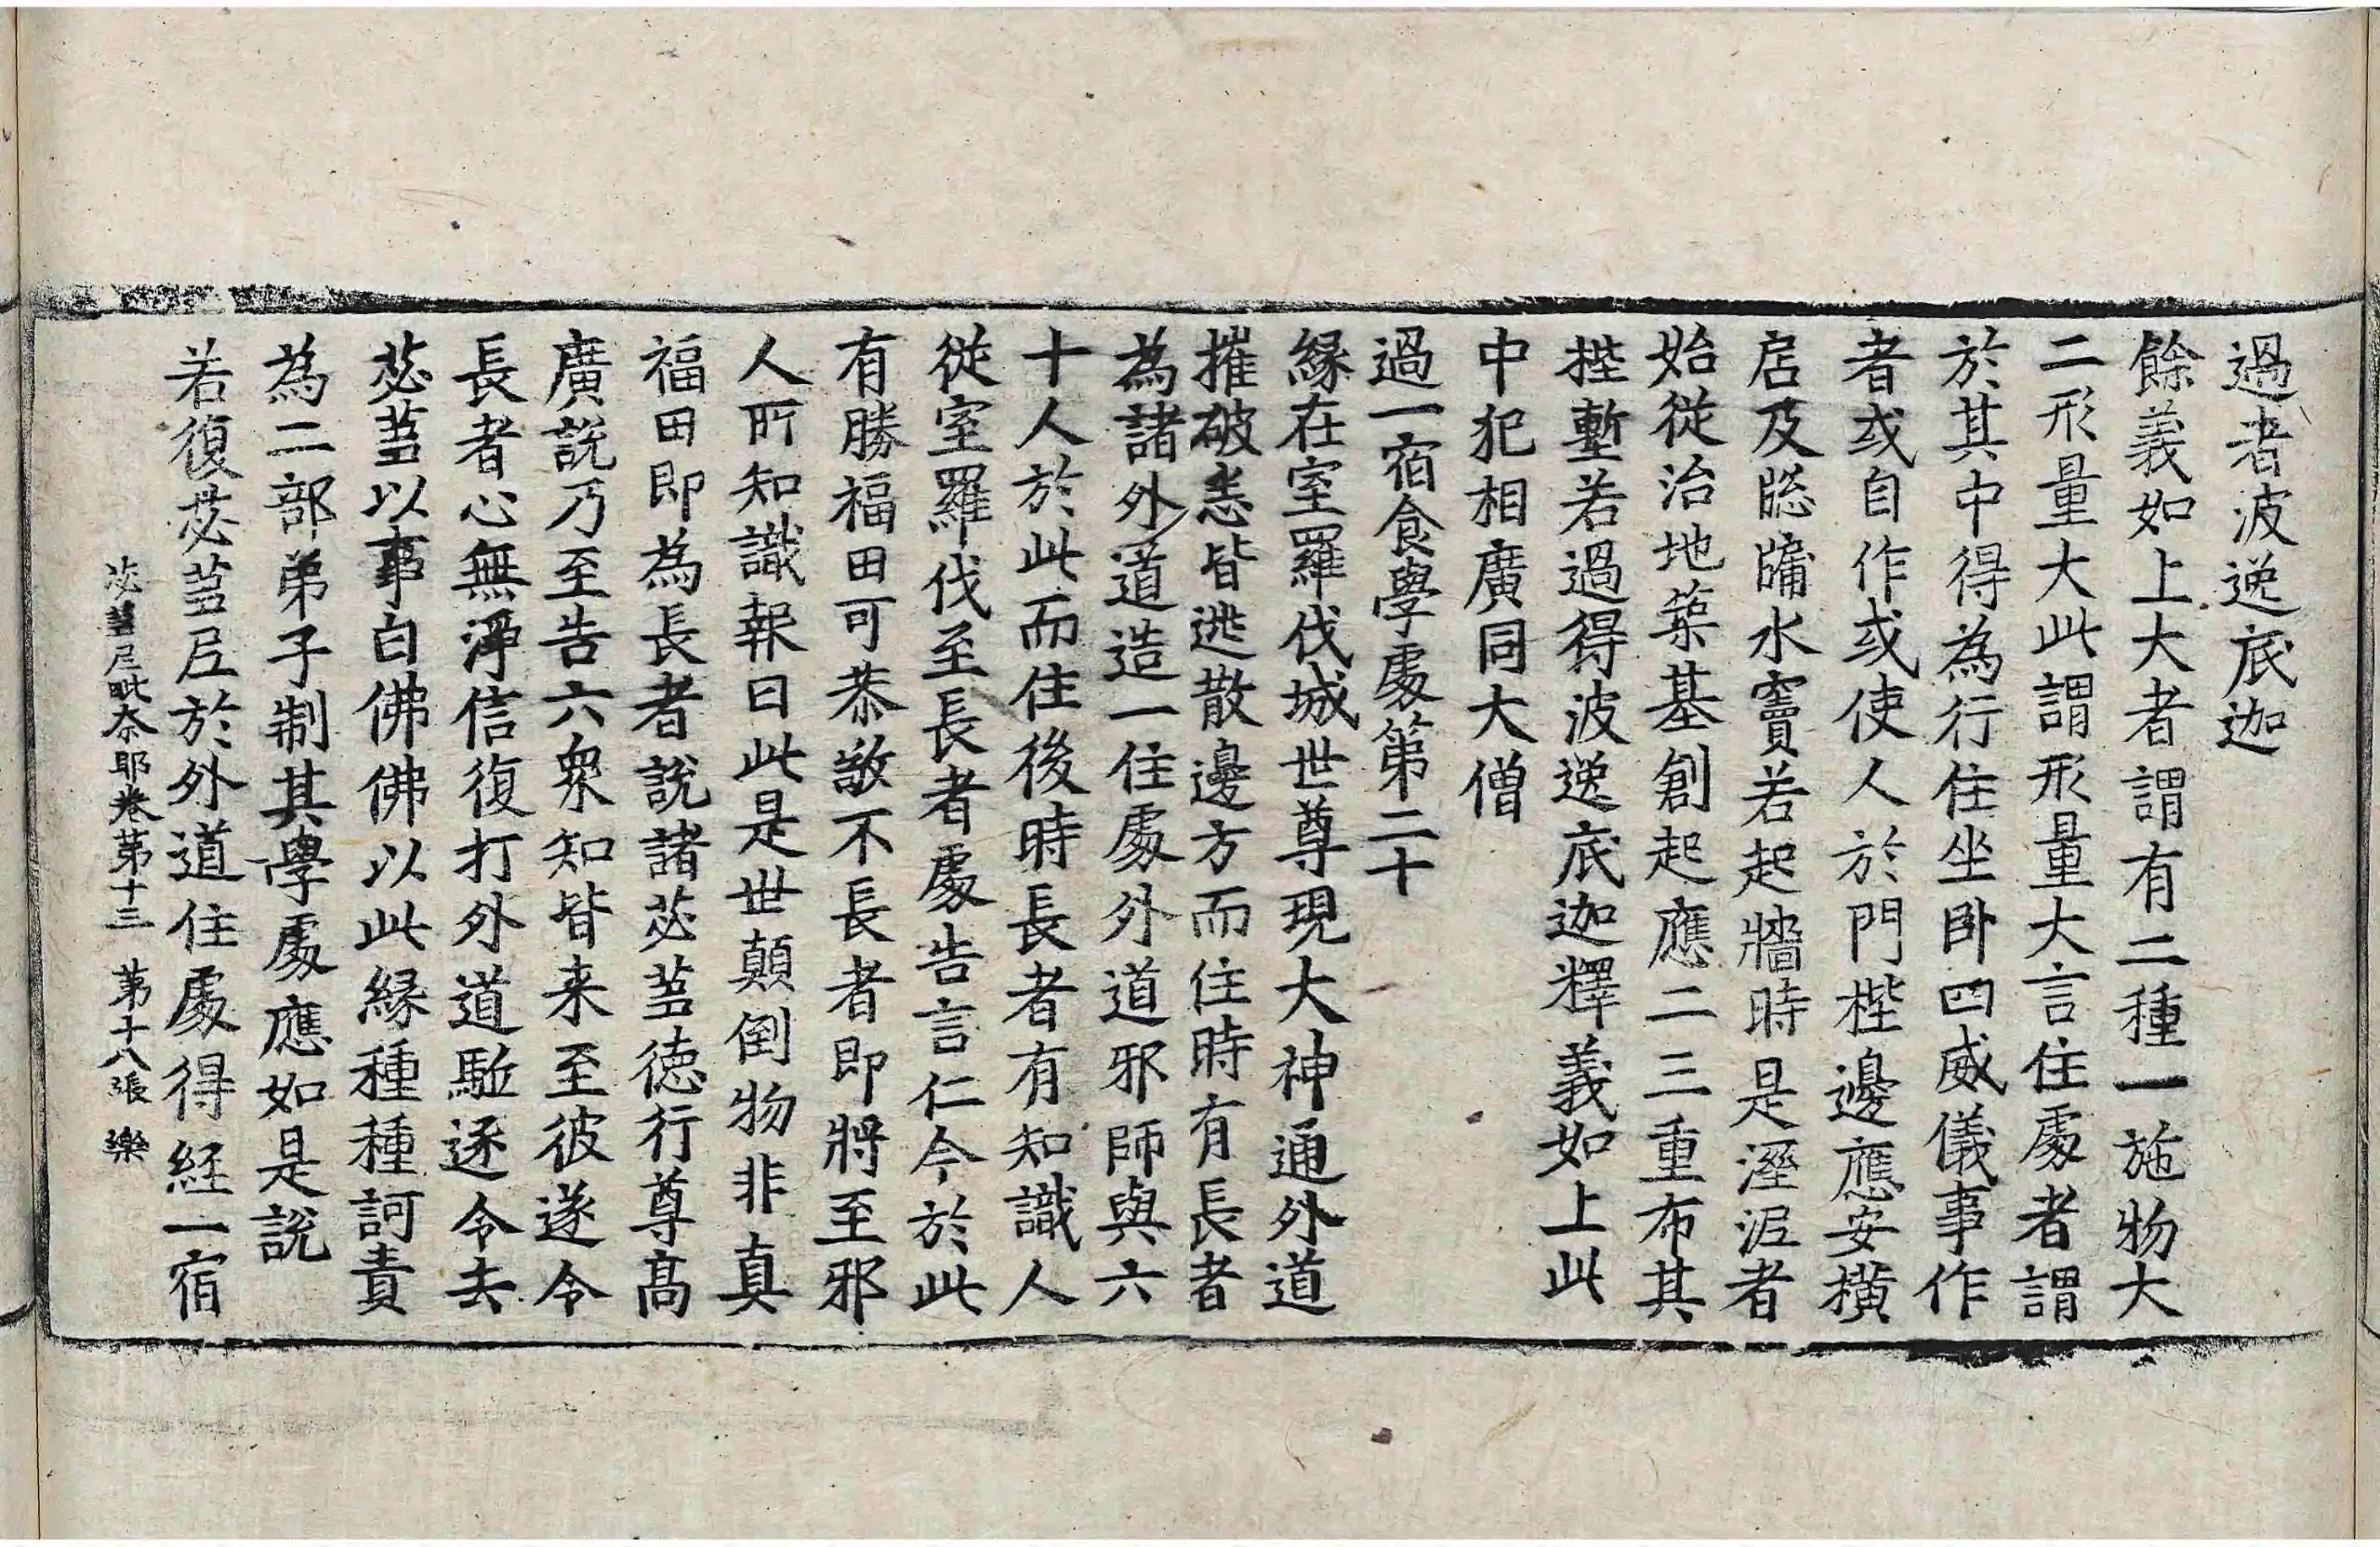 過者波逸底迦
餘義如上大者謂有二種一施物大
二形量大此謂形量大言住處者謂
於其中得為行住坐卧四威儀事作
者或自作或使人於門梐邊應安橫
扂及䆫牖水竇若起牆時是溼泥者
始從治地築基創起應二三重布其
梐塹若過得波逸底迦釋義如上此
中犯相廣同大僧
過一宿食學處第二十
緣在室羅伐城世尊現大神通外道
摧破恙皆逃散邊方而住時有長者
為諸外道造一住處外道邪師與六
十人於此而住後時長者有知識人
從室羅伐至長者處告言仁今於此
有勝福田可恭敬不長者即將至邪
人所知識報曰此是世顛倒物非真
福田即為長者說諸苾蒭德行尊高
廣說乃至告六衆知皆来至彼遂令
長者心無淨信復打外道駈逐令去
苾蒭以事白佛佛以此緣種種訶責
為二部弟子制其學處應如是說
若復苾蒭尼於外道住處得經一宿
苾蒭尼毗奈耶卷第十三 第十八張 樂